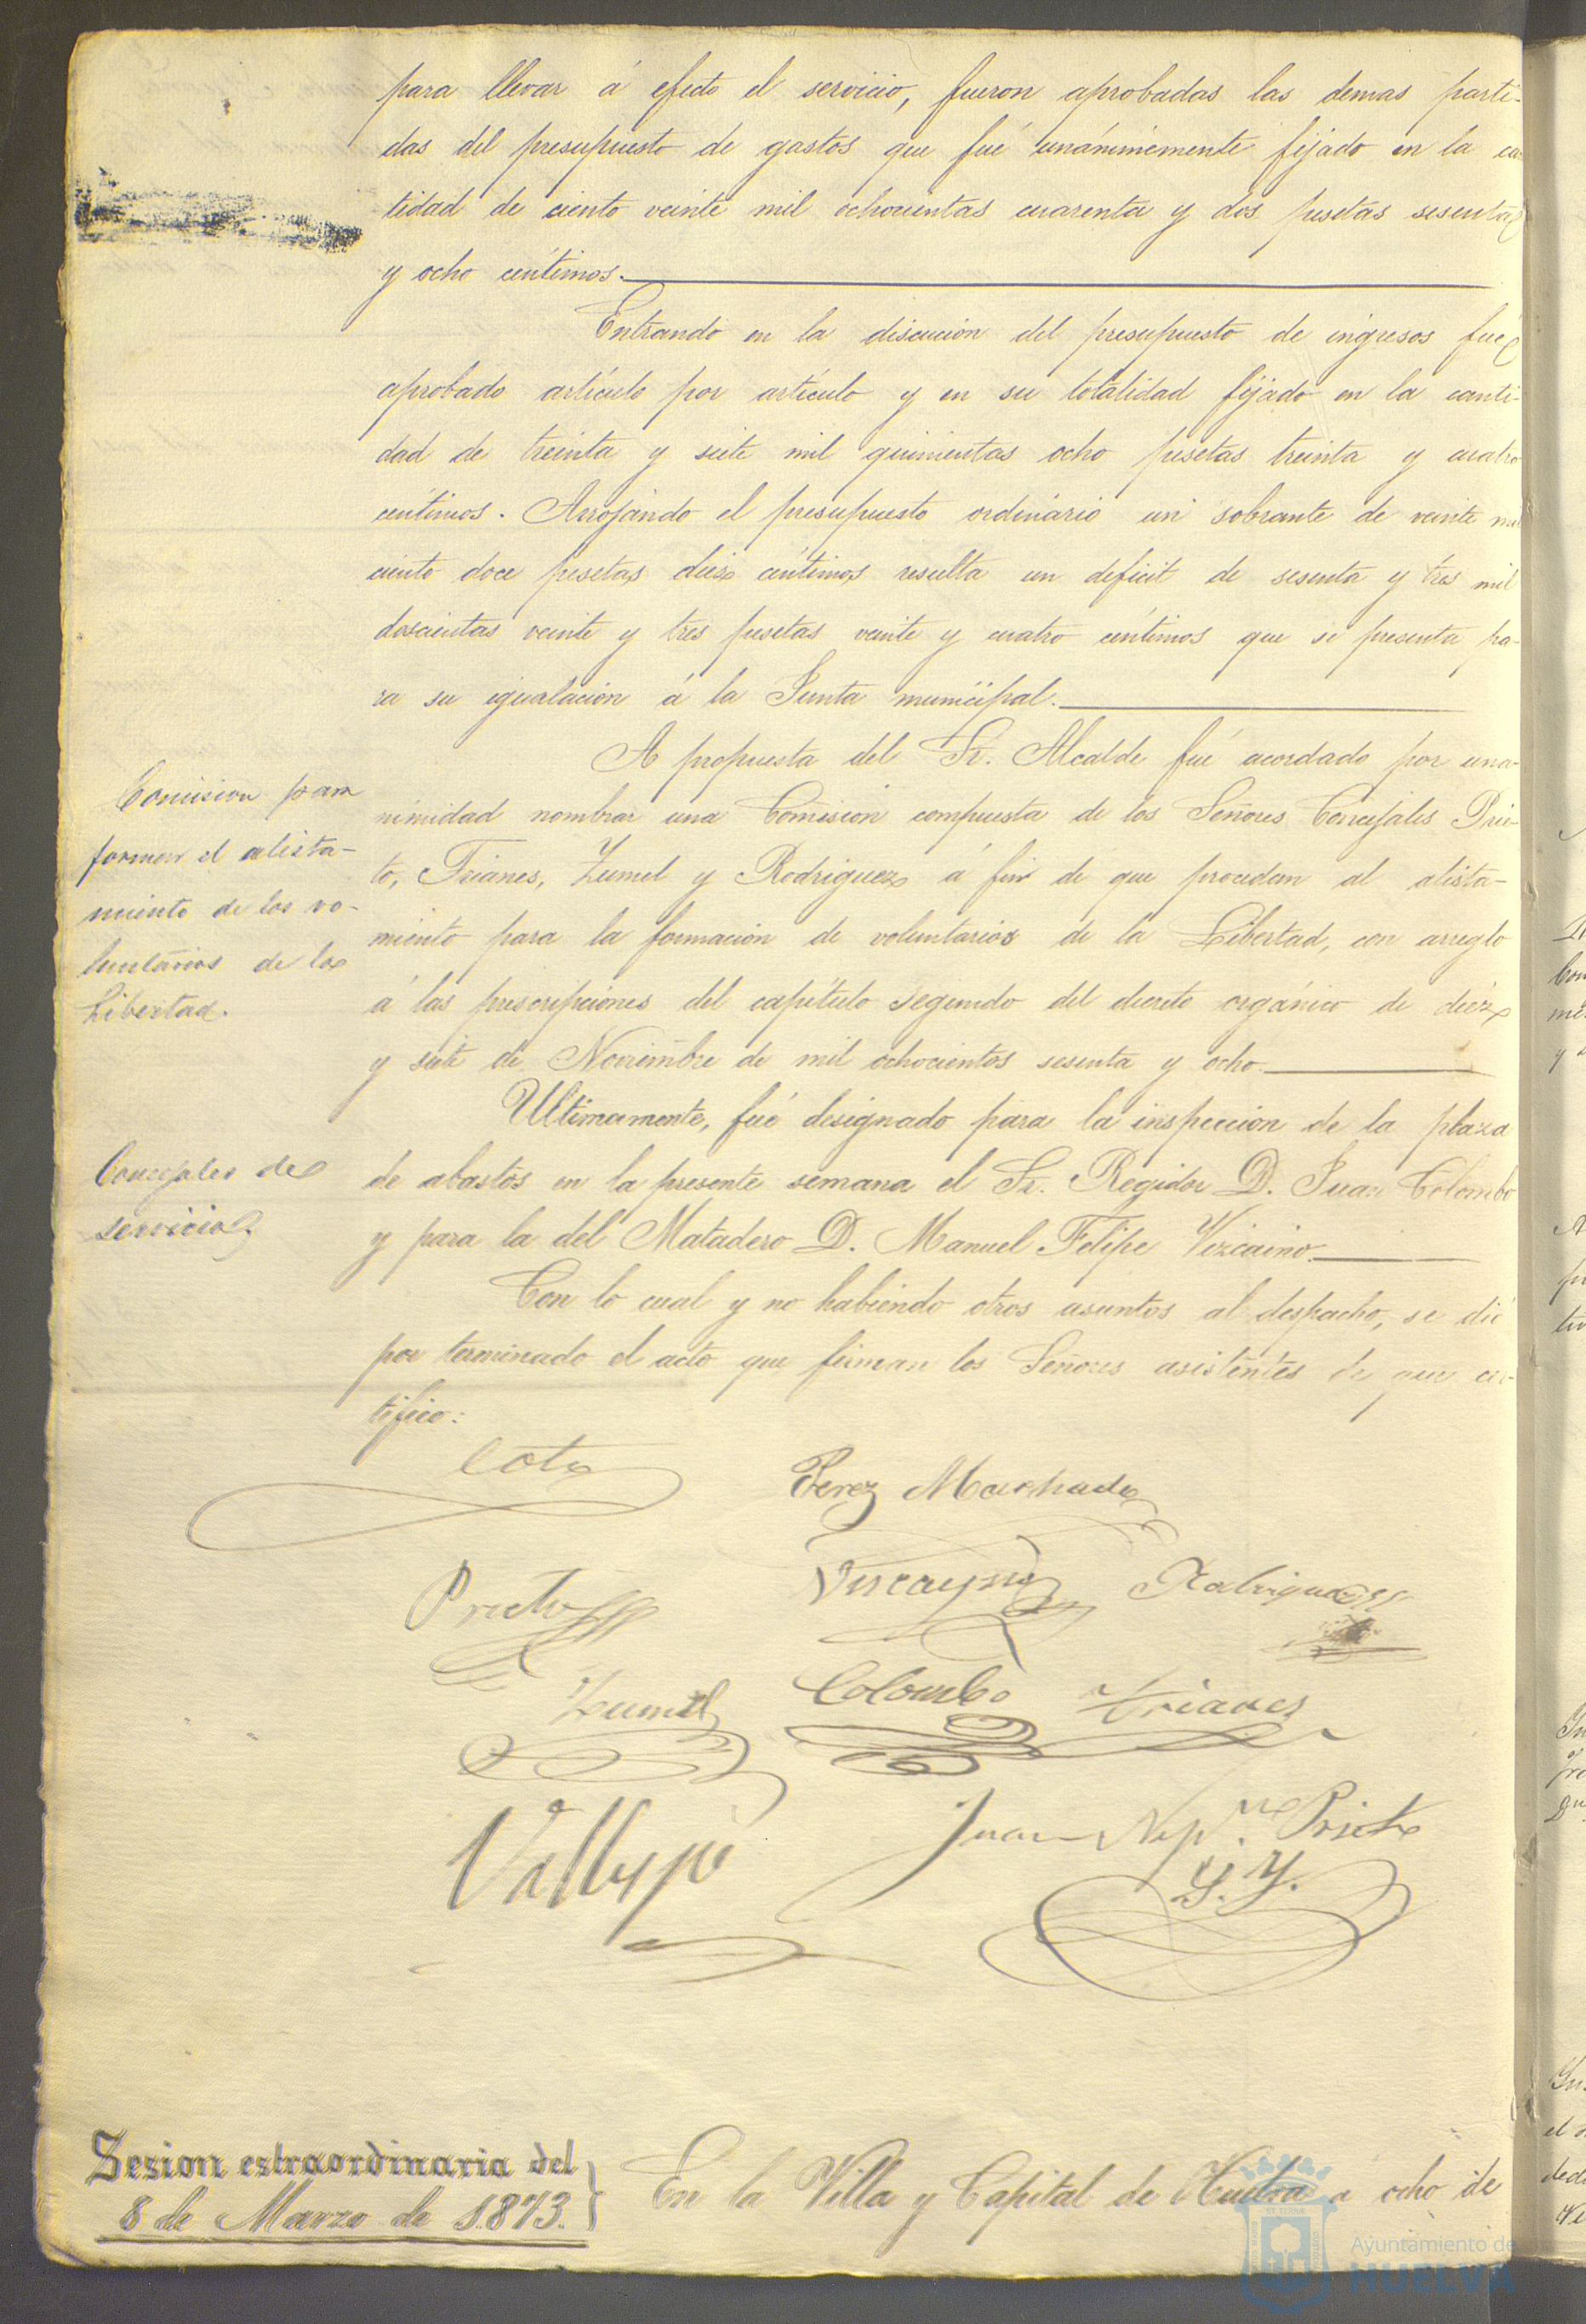 para llevar á efecto el servicio, fueron aprobadas las demas parti-
das del presupuesto de gastos que fué unánimemente fijado en la can
tidad de ciento veinte mil ochocientas cuarenta y dos pesetas sesenta
y ocho centimos.
Entrando en la discucion del presupuesto de ingresos fué
aprobado artículo por artículo y en su totalidad fijado en la canti-
dad de treinta y siete mil quinientas ocho pesetas treinta y cuatro
centimos. Arrojando el presupuesto ordinario un sobrante de veinte mil
ciento doce pesetas diez centimos resulta un deficit de sesenta y tres mil
doscientas veinte y tres pesetas veinte y cuatro céntimos que se presenta pa-
ra su igualacion á la Junta municipal.
Comision para
formar el alista-
miento de los vo-
luntarios de la
Libertad.
A propuesta del Sr. Alcalde fué acordado por una-
nimidad nombrar una Comision compuesta de los Señores Concejales Prie-
to, Trianes, Zumel y Rodriguez á fin de que procedan al alista-
miento para la formacion de voluntarios de la Libertad, con arreglo
á las prescripciones del capítulo segundo del decreto orgánico de diez
y siete de Noviembre de mil ochocientos sesenta y ocho.
Concejales de
servicio
Ultimamente, fué designado para la inspeccion de la plaza
de abastos en la presente semana el Sr. Regidor D. Juan Colombo
y para la del Matadero D. Manuel Felipe Vizcaino.
Con lo cual y no habiendo otros asuntos al despacho, se dió
por terminado el acto que firman los Señores asistentes de que cer-
tifico:
Coto
Perez Machado
Prieto
Viscayno
Rodriguez
Zumel
Colombo
Trianes
Vallejo
Juan Nepno. Prieto
Sesion estraordinaria del
8 de Marzo de 1873.
En la Villa y Capital de Huelva a ocho de
Ayuntamiento de
HUELVA